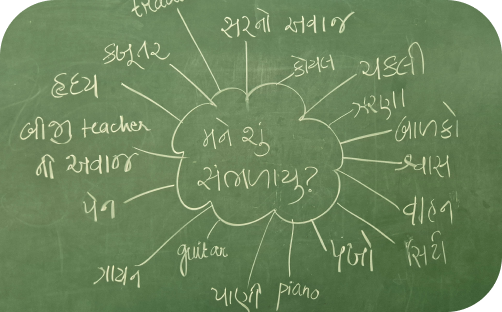 સરનો અવાજ
કબૂતર
કોયલ
ચકલી
હૃદય
ઝરણા
બીજી teacher
ની અવાજ
બાળકો
મને શું
સંભળાયુ?
શ્વાસ
પેન
વાહન
guitar
પંખો
ગાયન
પાણી
piano